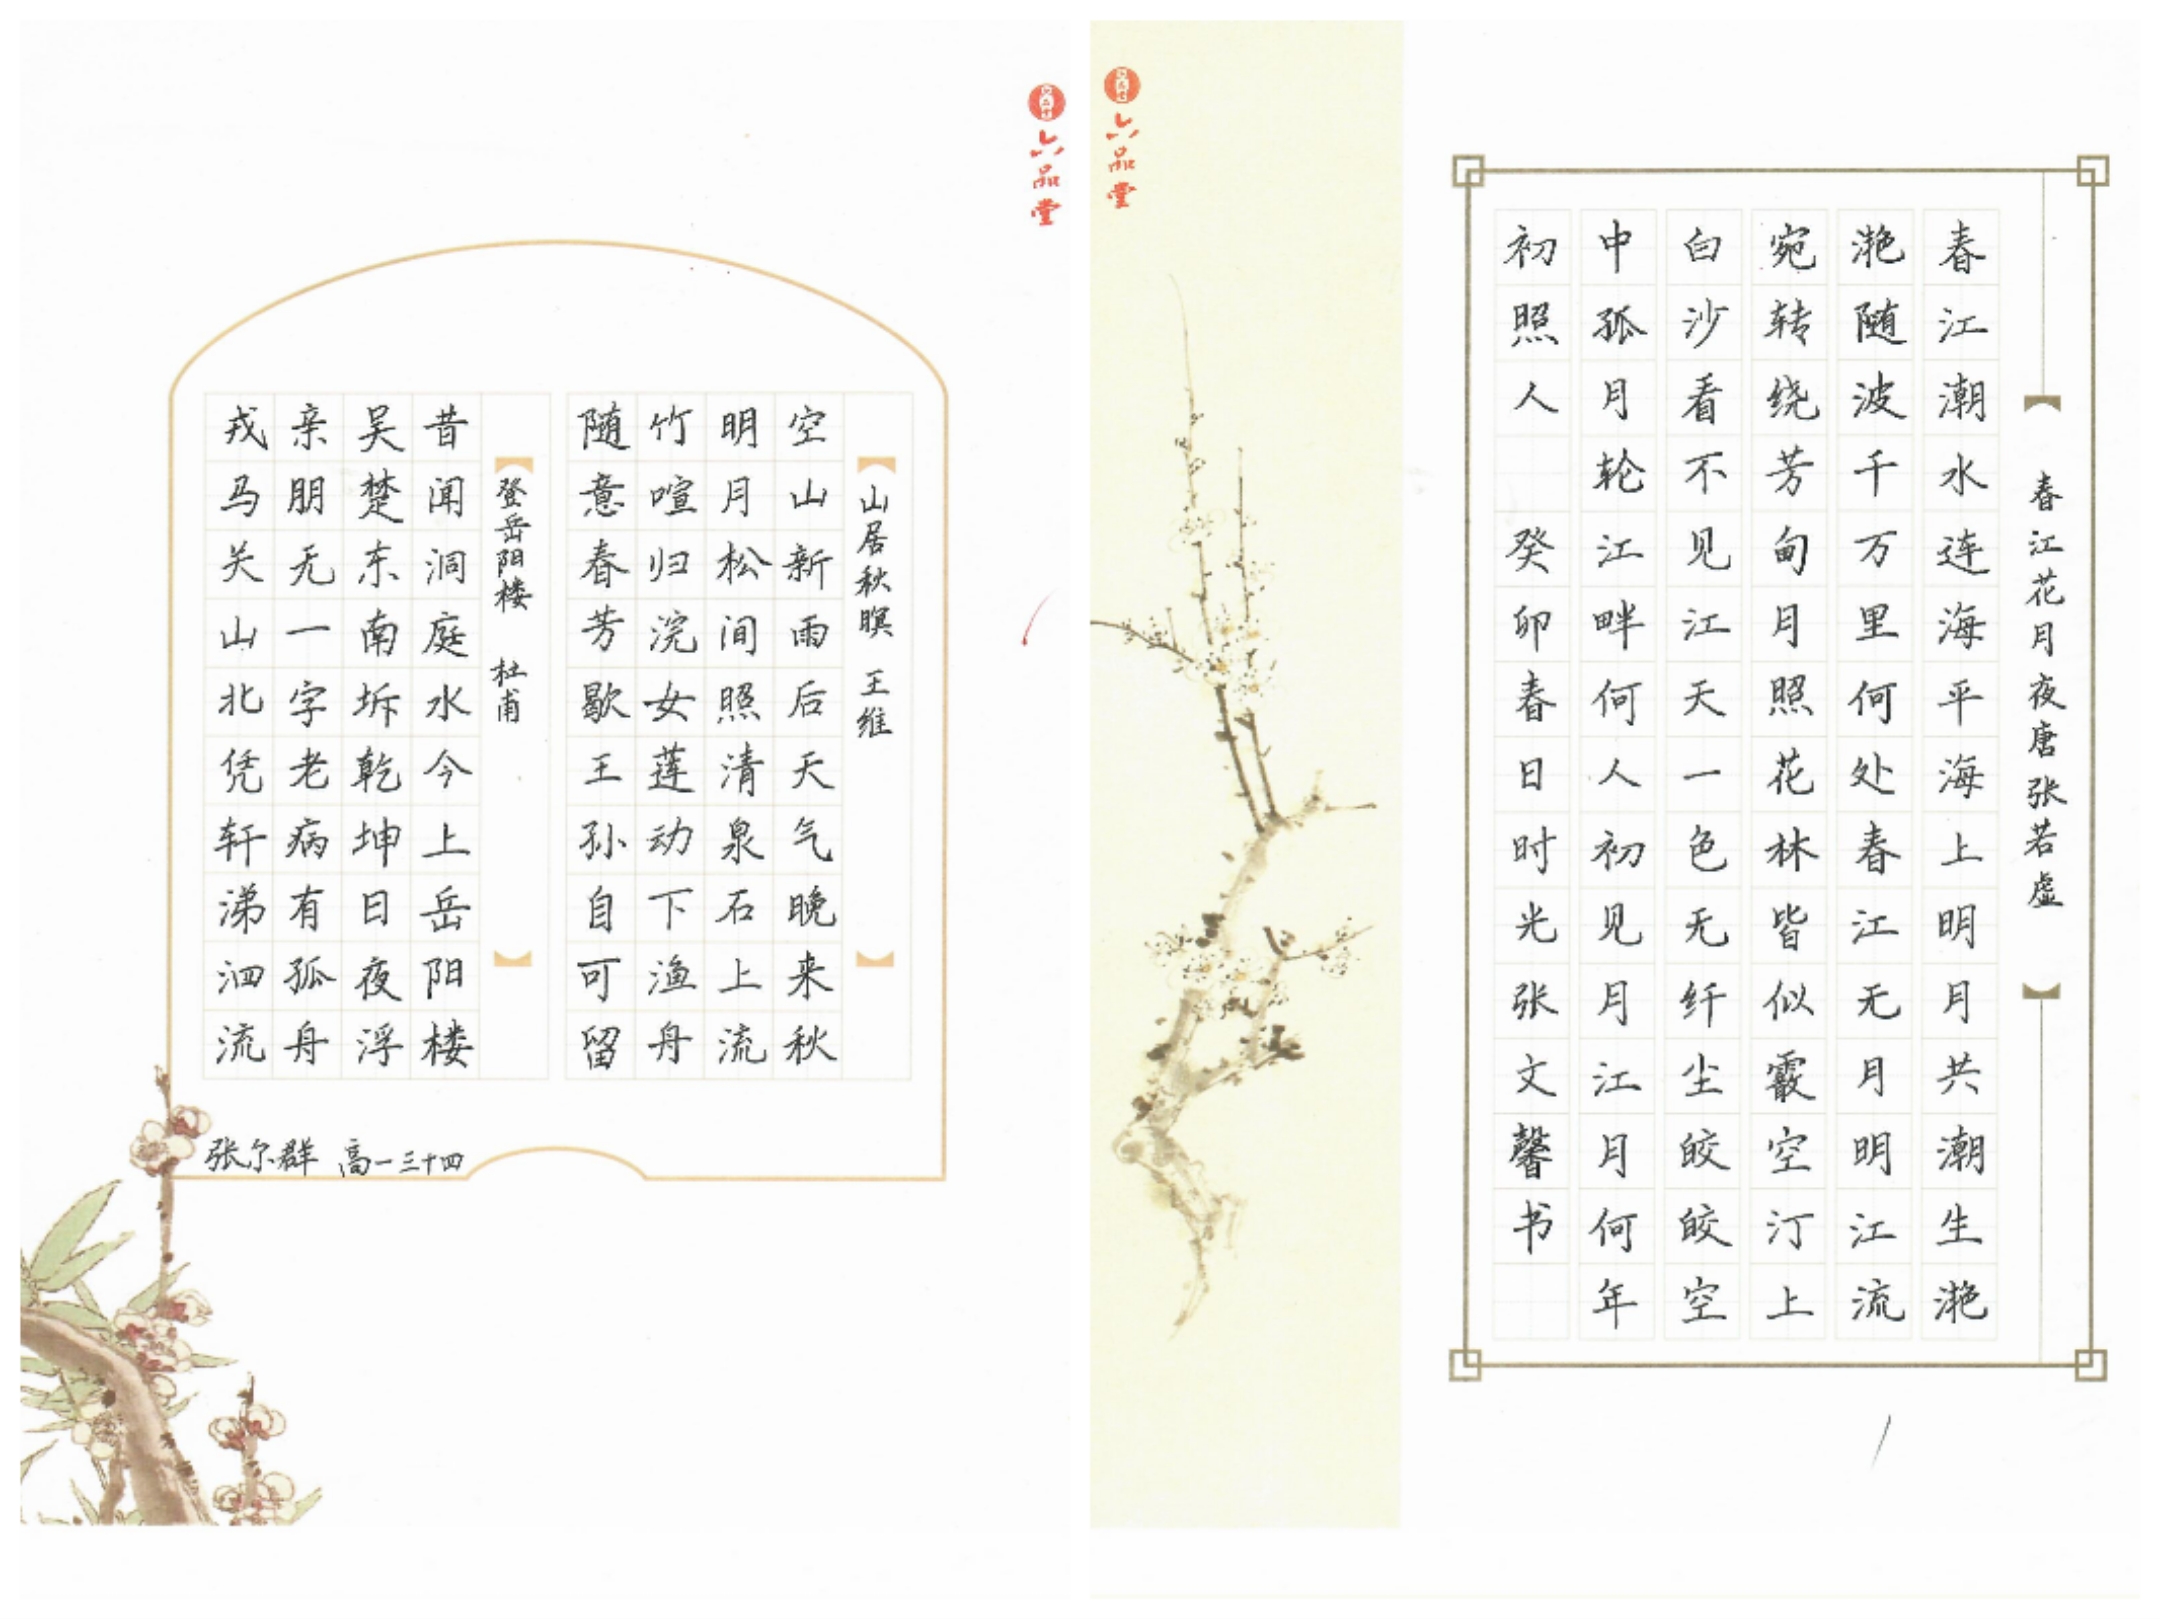 六品堂
山居秋暝 王维
空山新雨后天气晚来秋
明月松间照清泉石上流
竹喧归浣女莲动下渔舟
随意春芳歇王孙自可留
登岳阳楼 杜甫
昔闻洞庭水今上岳阳楼
吴楚东南坼乾坤日夜浮
亲朋无一字老病有孤舟
戎马关山北凭轩涕泗流
张尔群 高一三十四
六品堂
春江花月夜唐张若虚
春江潮水连海平海上明月共潮生滟
滟随波千万里何处春江无月明江流
宛转绕芳甸月照花林皆似霰空汀上
白沙看不见江天一色无纤尘皎皎空
中孤月轮江畔何人初见月江月何年
初照人 癸卯春日时光张文馨书